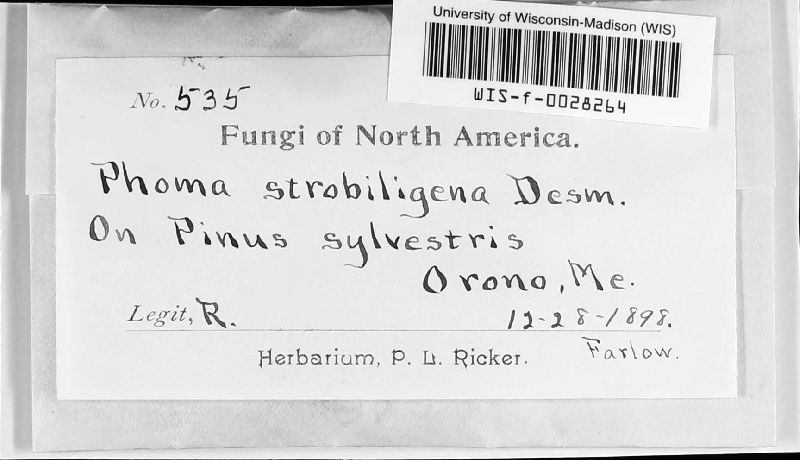 University of Wisconsin-Madison (WIS)
WIS-f-0028264
No. 535
Fungi of North America.
Phoma strobiligena Desm.
On Pinus sylvestris
Orono, Me.
Legit, R. 12-28-1898.
Herbarium, P. L. Ricker. Farlow.